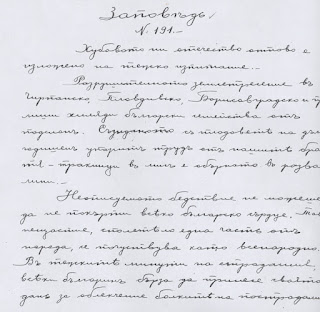 Заповѣдь
№ 191.-
Хубавото ни отечество отново е
изложено на тежко изпитание.-
Разрушителното земетресение въ
Чирпанско, Пловдивско, Борисовградско и
лиши хиляди български семейства отъ
подслонъ. Сградното съ подовенъ на
годишенъ упоритъ трудъ отъ нашитѣ
въ мигъ е обърнато въ
Неотшедемото бедствие не можеше
да не покърти всѣко българско сърдце.
нещастие, сполетѣло една часть отъ
народа, се почувствува като всенародно.
Въ тежкитѣ минути на страдания,
всѣки българинъ бърза да принесе своята
дань за облекчение болкитѣ на